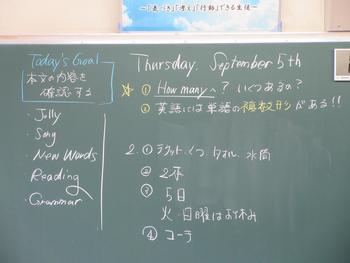 ～「気づき」「考え」「行動」できる生徒～
Today's Goal
本文の内容を
確認する
・Jolly
・Song
・New Words
・Reading
・Grammar
Thursday, September 5th
☆ ① How many ～? いくつあるの?
② 英語には単語の複数形がある!!
2. ① ラケット・くつ・タオル・水筒
② 2本
③ 5日
火・日曜はお休み
④ コーラ